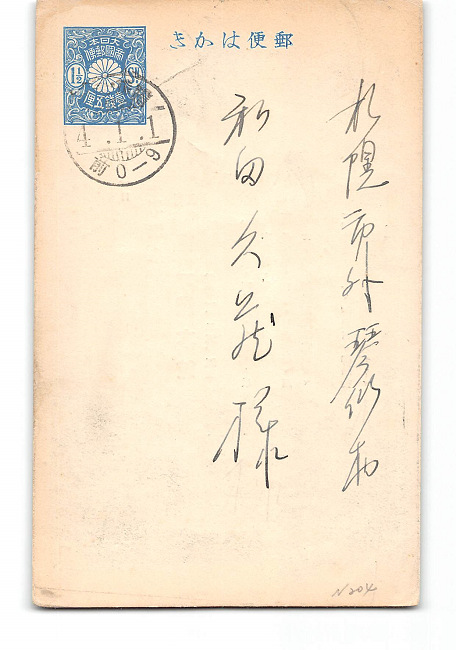 郵便はかき
大日本
帝國郵便
1½ Sn
壹錢五厘
4.1.1
前0-9
札幌市外琴似村
和田久蔵様
N204